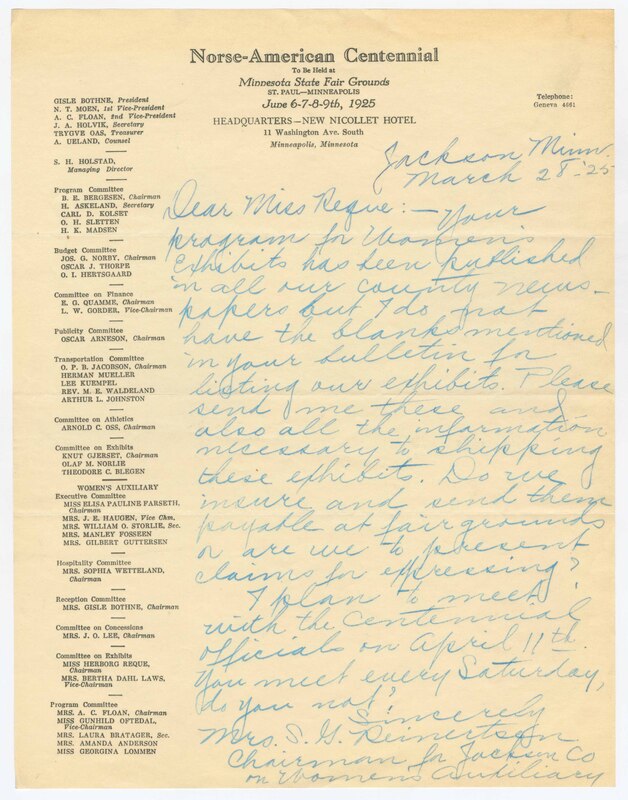 Norse-American Centennial
To Be Held at
Minnesota State Fair Grounds
ST. PAUL—MINNEAPOLIS
June 6-7-8-9th, 1925
HEADQUARTERS—NEW NICOLLET HOTEL
11 Washington Ave. South
Minneapolis, Minnesota
Telephone:
Geneva 4661
GISLE BOTHNE, President
N. T. MOEN, 1st Vice-President
A. C. FLOAN, 2nd Vice-President
J. A. HOLVIK, Secretary
TRYGVE OAS, Treasurer
A. UELAND, Counsel
S. H. HOLSTAD,
Managing Director
Program Committee
B. E. BERGESEN, Chairman
H. ASKELAND, Secretary
CARL D. KOLSET
O. H. SLETTEN
H. K. MADSEN
Budget Committee
JOS. G. NORBY, Chairman
OSCAR J. THORPE
O. I. HERTSGAARD
Committee on Finance
E. G. QUAMME, Chairman
L. W. GORDER, Vice-Chairman
Publicity Committee
OSCAR ARNESON, Chairman
Transportation Committee
O. P. B. JACOBSON, Chairman
HERMAN MUELLER
LEE KUEMPEL
REV. M. E. WALDELAND
ARTHUR L. JOHNSTON
Committee on Athletics
ARNOLD C. OSS, Chairman
Committee on Exhibits
KNUT GJERSET, Chairman
OLAF M. NORLIE
THEODORE C. BLEGEN
WOMEN'S AUXILIARY
Executive Committee
MISS ELISA PAULINE FARSETH,
Chairman
MRS. J. E. HAUGEN, Vice Chm.
MRS. WILLIAM O. STORLIE, Sec.
MRS. MANLEY FOSSEEN
MRS. GILBERT GUTTERSEN
Hospitality Committee
MRS. SOPHIA WETTELAND,
Chairman
Reception Committee
MRS. GISLE BOTHNE, Chairman
Committee on Concessions
MRS. J. O. LEE, Chairman
Committee on Exhibits
MISS HERBORG REQUE,
Chairman
MRS. BERTHA DAHL LAWS,
Vice-Chairman
Program Committee
MRS. A. C. FLOAN, Chairman
MISS GUNHILD OFTEDAL,
Vice-Chairman
MRS. LAURA BRATAGER, Sec.
MRS. AMANDA ANDERSON
MISS GEORGINA LOMMEN
Jackson Minn.
March 28-'25
Dear Miss Reque:—Your
program for Women's
Exhibits has been published
in all our county news-
papers but I do not
have the blanks mentioned
in your bulletin for
listing our exhibits. Please
send me these and
also all the information
necessary to shipping
these exhibits. Do we
insure and send them
payable at fairgrounds
or are we to present
claims for expressing?
I plan to meet
with the Centennial
officials on April 11th.
You meet every Saturday,
do you not?
Sincerely
Mrs. S. G. Reinertson
Chairman for Jackson Co
on Women's Auxiliary